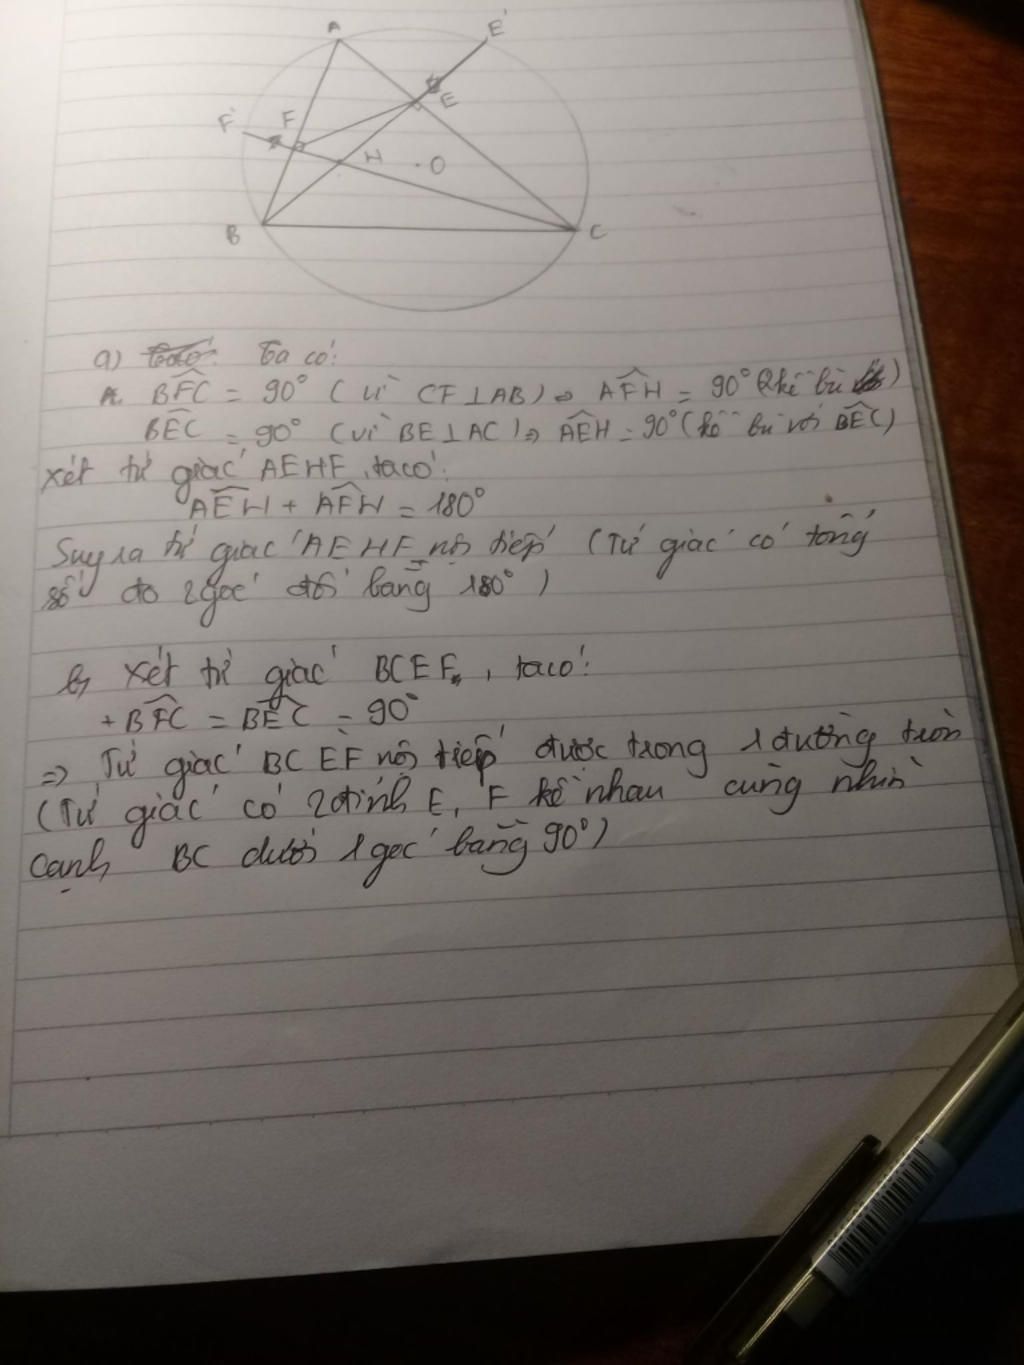 A
E'
E
F'
F
H
O
B
C
a) Ta có:
BFC = 90° (vì CF⊥AB) => AFH = 90° (kề bù)
BEC = 90° (vì BE⊥AC) => AEH = 90° (kề bù với BEC)
xét tứ giác AEHF, ta có:
AEH + AFH = 180°
Suy ra tứ giác AEHF nội tiếp (Tứ giác có tổng
số đo 2 góc đối bằng 180°)
b, xét tứ giác BCEF, ta có:
+ BFC = BEC = 90°
=> Tứ giác BCEF nội tiếp được trong 1 đường tròn
(Tứ giác có 2 đỉnh E, F kề nhau cùng nhìn
cạnh BC dưới 1 góc bằng 90°)